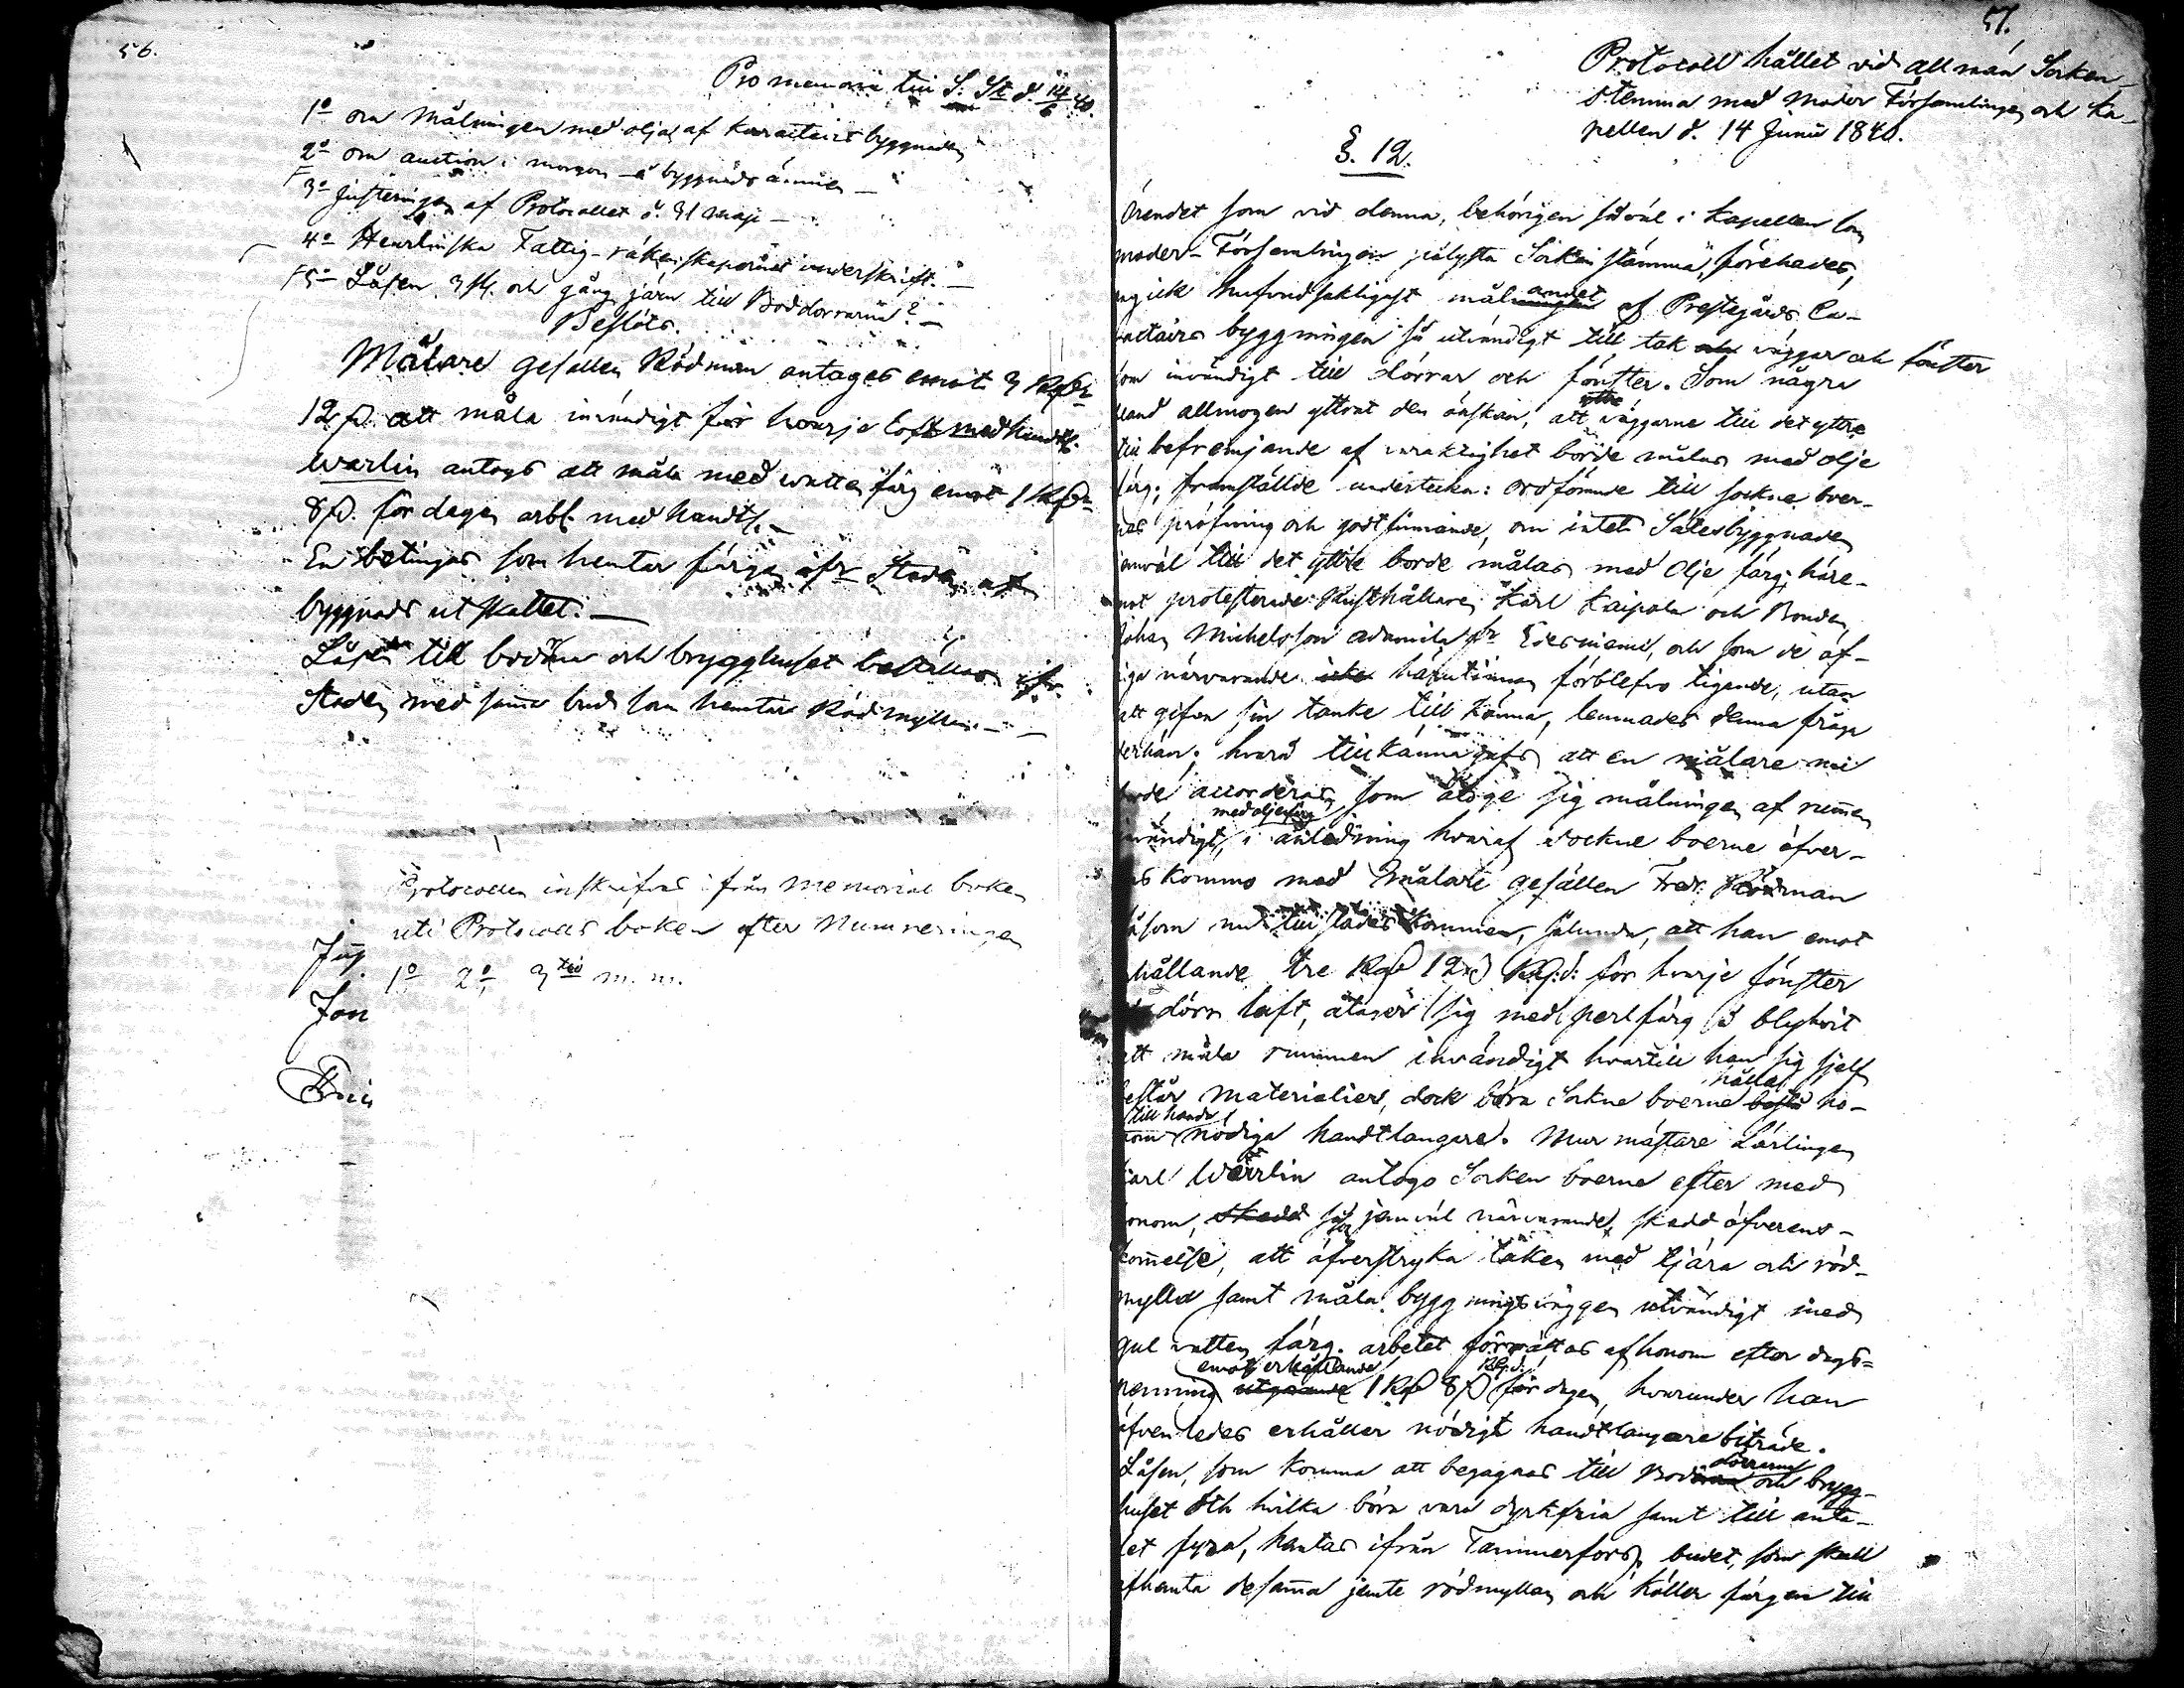 56.
Promemoria till S. St. d. 14/6 40.
1o om målningen med olja af Karactairs byggnaden
2o om auction i morgon å byggnads ämnen —
3o Justeringen af Protocollet d. 31 Maji —
4o Heurlinska Fattig-räkenskapernas underskrift. —
5o Låsen 3 st. och gång järn till Boddörrarna? —
Beslöts.
Målare gesällen Rödman antages emot 3 Rubr
12 β. att måla invändigt för hvarje luft med handtl.
Warlin antogs att måla med vatten färg emot 1 Rubr
8 β. för dagen arbl. med handtl. —
En betingas som hemtar färgen ifr Staden af
byggnads utskattet. —
Låsen till bodarna och brygghuset beställas ifr.
Staden med samma bud som hemtar Rödmyllan. —
Protocollen inskrifvas ifrån Memorial boken
uti Protocolls boken efter Numreringen
1o 2o 3tio m. m.
Jag
Jon
57.
Protocoll hållet vid allmän Socken
stemma med Moder Församlingen och Ka-
pellen d. 14 Junii 1840.
§. 12.
Ärendet som vid denna, behörigen såväl i Kapellen som
moder-Församlingen pålysta Sockenstämma, förehades,
ingick hufvudsakligast målandet af Prestegårds Ca-
ractairs byggningen så utvändigt till tak väggar och fönster
som invändigt till dörrar och fönster. Som några
bland allmogen yttrat den önskan, att väggarne till det yttre
till befremjande af varaktighet börde målas med olje
färg; framställde undertecken: ordförande till sockne boer-
nas pröfning och godtfinnande, om intet Sätesbyggnaden
jemväl till det yttre borde målas med Olje färg; häre-
mot protesterade Rusthållaren Karl Kaipola och Bonden
Johan Michelsson fr Edesniemi, och som de öf-
riga närvarande härutinnan förblefvo tigande, utan
att gifva sin tanke till känna, lemnades denna fråga
derhän; hvard tillkännagafs att en målare nu
borde accorderas, som åtoge sig målningen af rummen
invändigt med oljefärg, i anledning hvaraf sockne boerne öfver-
ens kommo med Målare gesällen Fredr. Rödman
såsom nu tillstädes kommen, sålunda, att han emot
erhållande tre Rub 12 β Rg:d: för hvarje fönster
och dörr luft, åtager sig med perlfärg å blyhvit
att måla rummen invändigt hvartill han sig sjelf
består Materialier, dock böra Sockne boerne hålla ho-
nom till handa nödiga handtlangare. Mur mästare Lärlingen
Karl Wärrlin antogo Socken boerne efter med
honom, såsom jemväl närvarande, skedd öfverens-
kommelse, att öfverstryka taken med tjära och röd-
mylla samt måla byggningsväggen utvändigt med
gul vatten färg. arbetet förrättas af honom efter dags-
penning emot erhållande 1 Rub 8 β Rg:d: för dagen, hvarunder han
äfvenledes erhåller nödigt handtlangare biträde.
Låsen, som komma att begagnas till Bod dörrarna och brygg-
huset och hvilka böra vara dyrkfria samt till anta-
let fyra, hemtas ifrån Tammerfors, budet, som skall
afhemta desamma jemte rödmyllan och håller färgen till